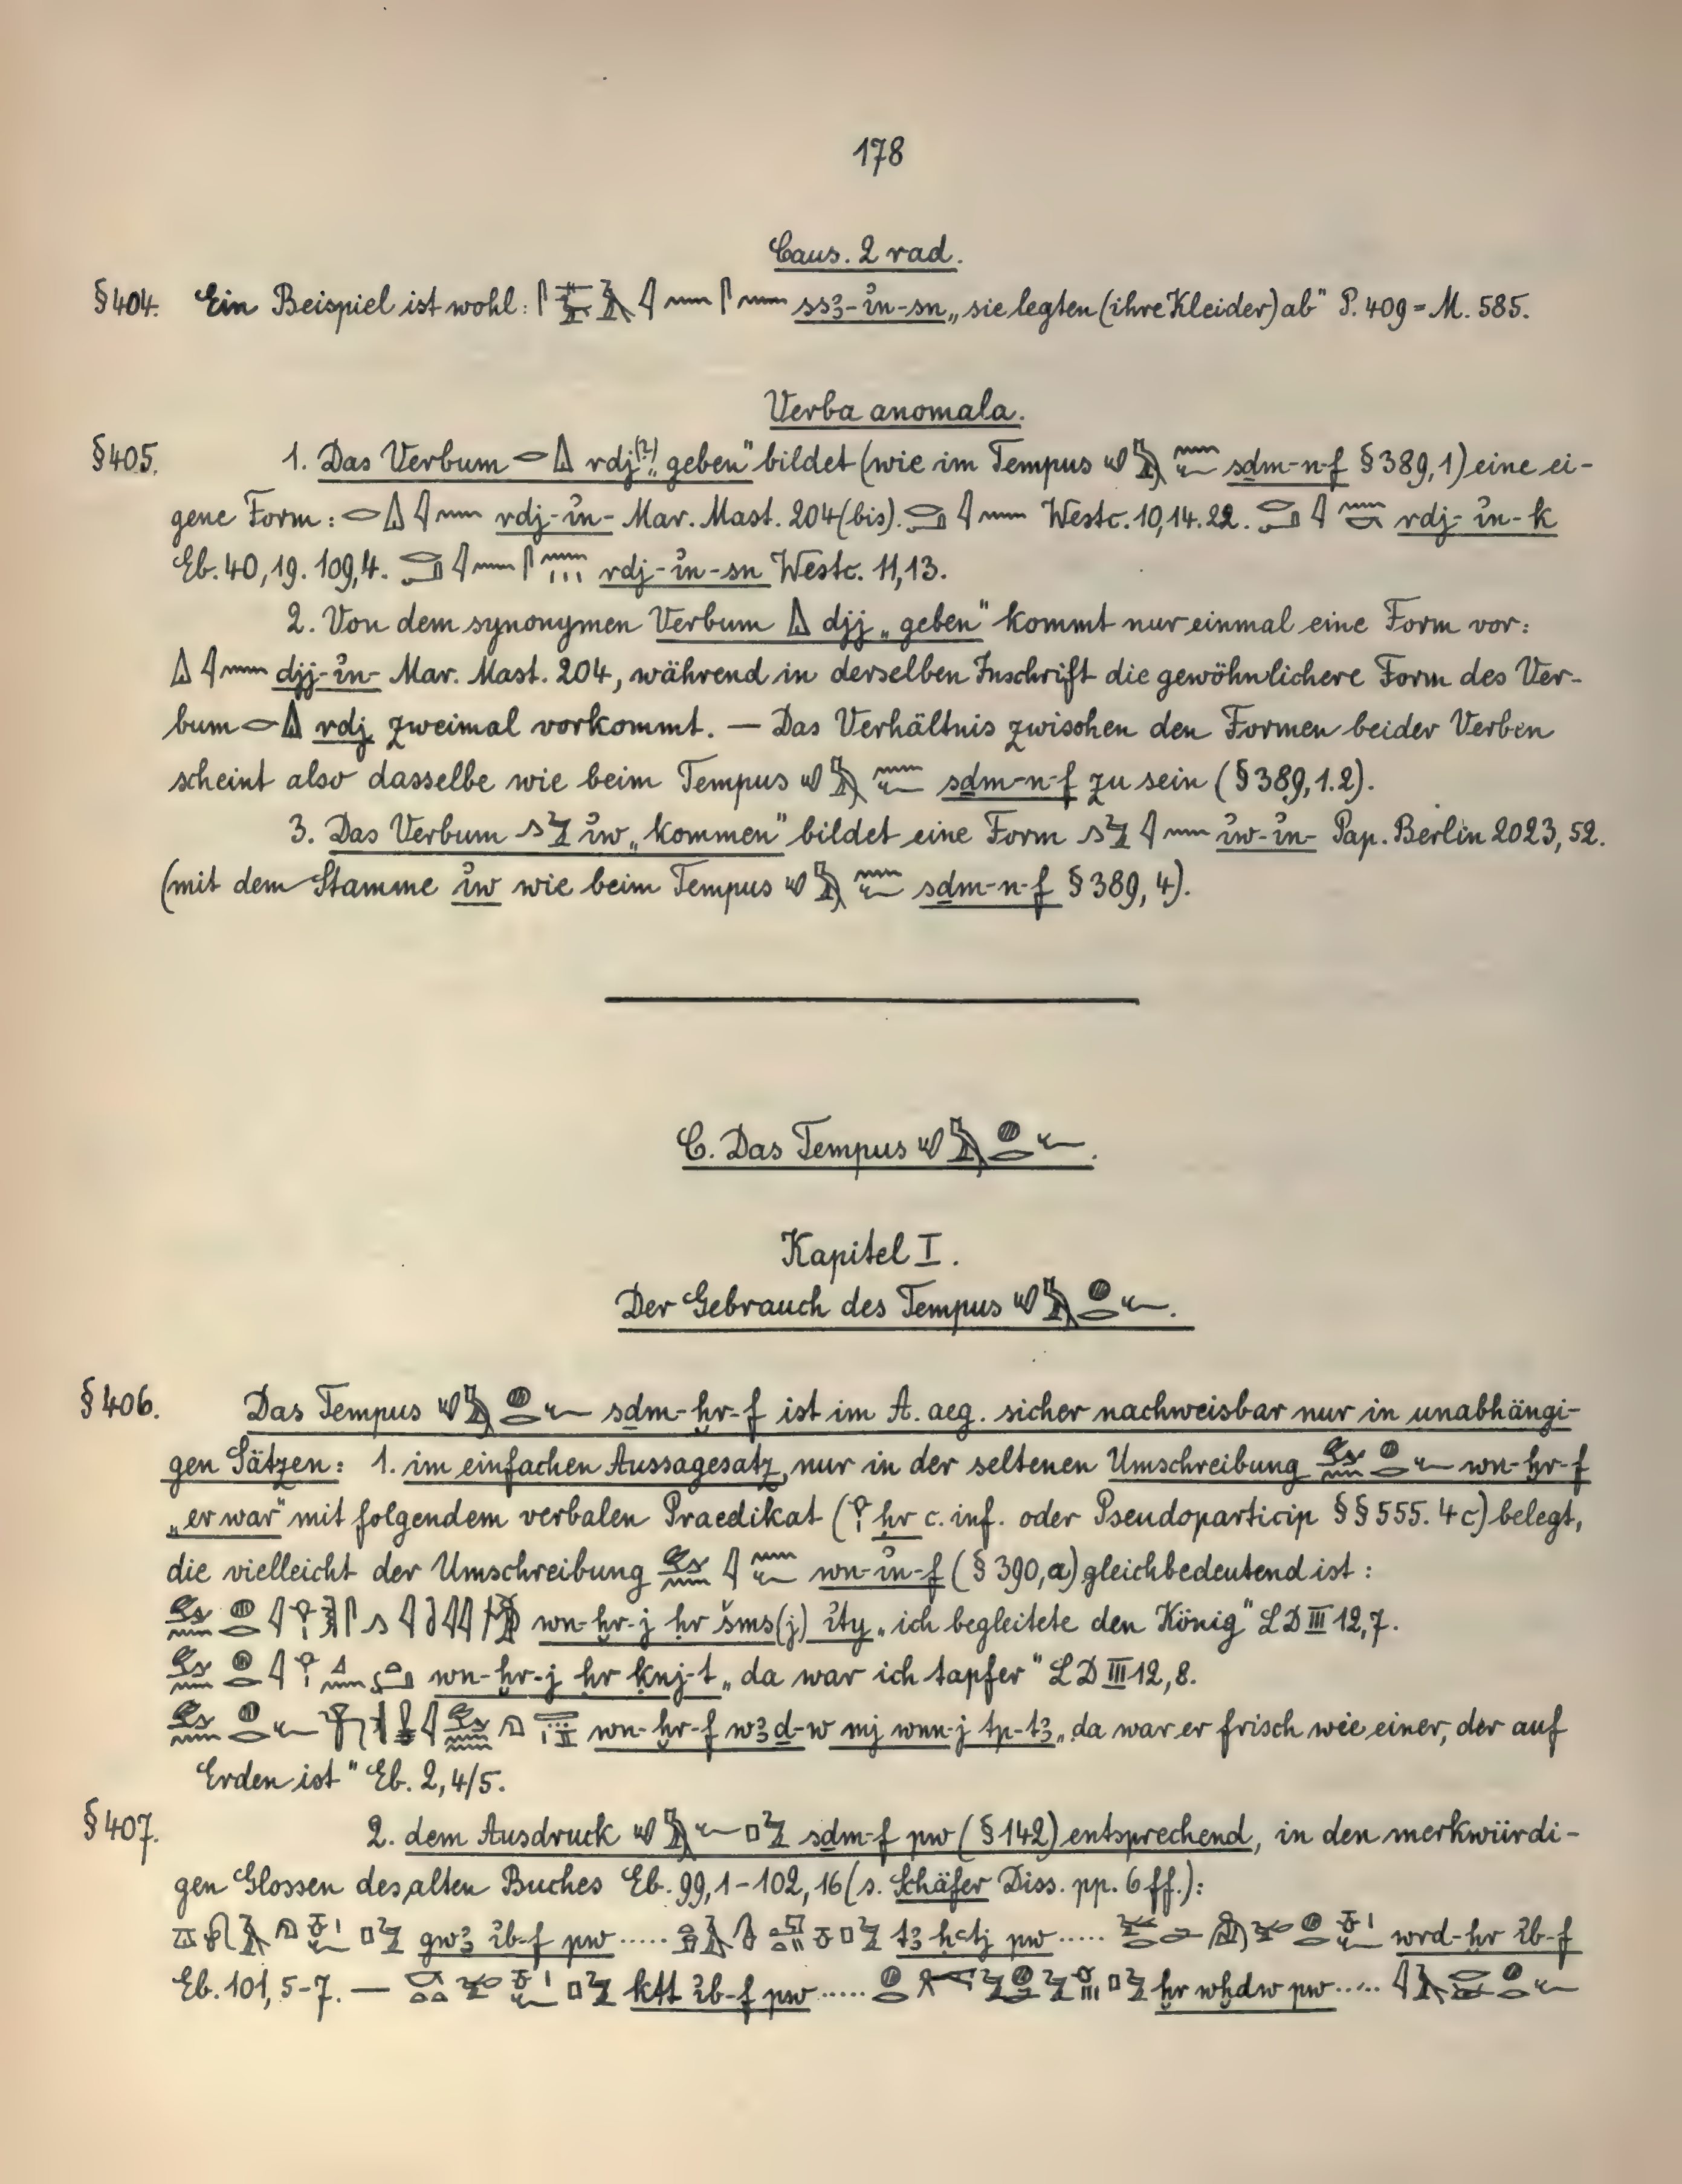 178
Caus. 2 rad.
§404. Ein Beispiel ist wohl: ss3-i͗n-sn „sie legten (ihre Kleider) ab" P. 409 = M. 585.
Verba anomala.
§405. 1. Das Verbum rdj(?) „geben" bildet (wie im Tempus sḏm-n-f §389,1) eine ei-
gene Form: rdj-i͗n- Mar. Mast. 204 (bis). Westc. 10,14. 22. rdj-i͗n-k
Eb. 40,19. 109,4. rdj-i͗n-sn Westc. 11,13.
2. Von dem synonymen Verbum djj „geben" kommt nur einmal eine Form vor:
djj-i͗n- Mar. Mast. 204, während in derselben Inschrift die gewöhnlichere Form des Ver-
bum rdj zweimal vorkommt. — Das Verhältnis zwischen den Formen beider Verben
scheint also dasselbe wie beim Tempus sḏm-n-f zu sein (§389,1.2).
3. Das Verbum i͗w „kommen" bildet eine Form i͗w-i͗n- Pap. Berlin 2023, 52.
(mit dem Stamme i͗w wie beim Tempus sḏm-n-f §389, 4).
C. Das Tempus .
Kapitel I.
Der Gebrauch des Tempus .
§406. Das Tempus sḏm-ḫr-f ist im A. aeg. sicher nachweisbar nur in unabhängi-
gen Sätzen: 1. im einfachen Aussagesatz, nur in der seltenen Umschreibung wn-ḫr-f
„er war" mit folgendem verbalen Praedikat (ḥr c. inf. oder Pseudoparticip §§555. 4c) belegt,
die vielleicht der Umschreibung wn-i͗n-f (§390,a) gleichbedeutend ist:
wn-ḫr-j ḥr šms(j) i͗ty „ich begleitete den König" LD III 12,7.
wn-ḫr-j ḥr ḳnj-t „da war ich tapfer" LD III 12, 8.
wn-ḫr-f w3ḏ-w mj wnn-j tp-t3 „da war er frisch wie einer, der auf
Erden ist" Eb. 2, 4/5.
§407. 2. dem Ausdruck sḏm-f pw (§142) entsprechend, in den merkwürdi-
gen Glossen des alten Buches Eb. 99,1-102,16 (s. Schäfer Diss. pp. 6ff.):
gw3 i͗b-f pw ..... t3 ḥꜥtj pw ..... wrd-ḫr i͗b-f
Eb. 101, 5-7. — ktt i͗b-f pw ..... ḫr wḫdw pw .....